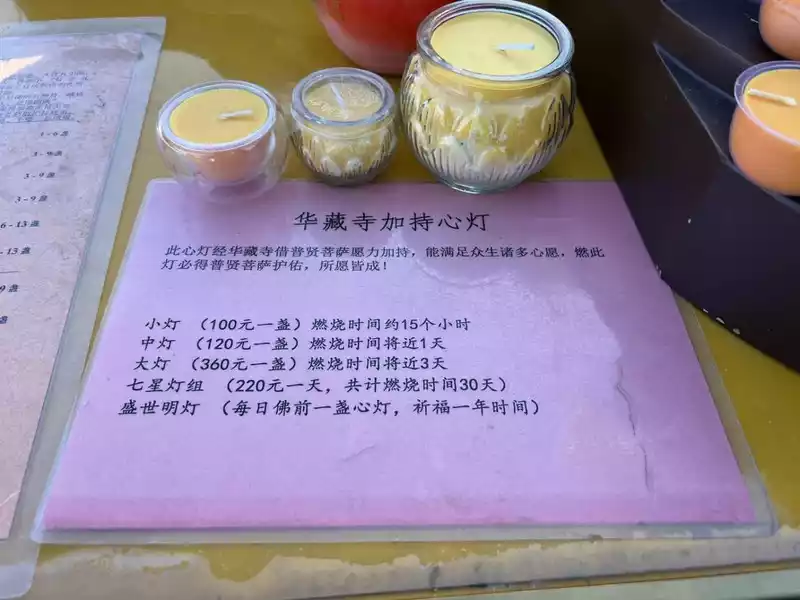 华藏寺加持心灯
此心灯经华藏寺借普贤菩萨愿力加持，能满足众生诸多心愿，燃此
灯必得普贤菩萨护佑，所愿皆成！
小灯 （100元一盏）燃烧时间约15个小时
中灯 （120元一盏）燃烧时间将近1天
大灯 （360元一盏）燃烧时间将近3天
七星灯组 （220元一天，共计燃烧时间30天）
盛世明灯 （每日佛前一盏心灯，祈福一年时间）
1-6盏
3-9盏
3-9盏
3-9盏
6-13盏
6-13盏
9盏
盏